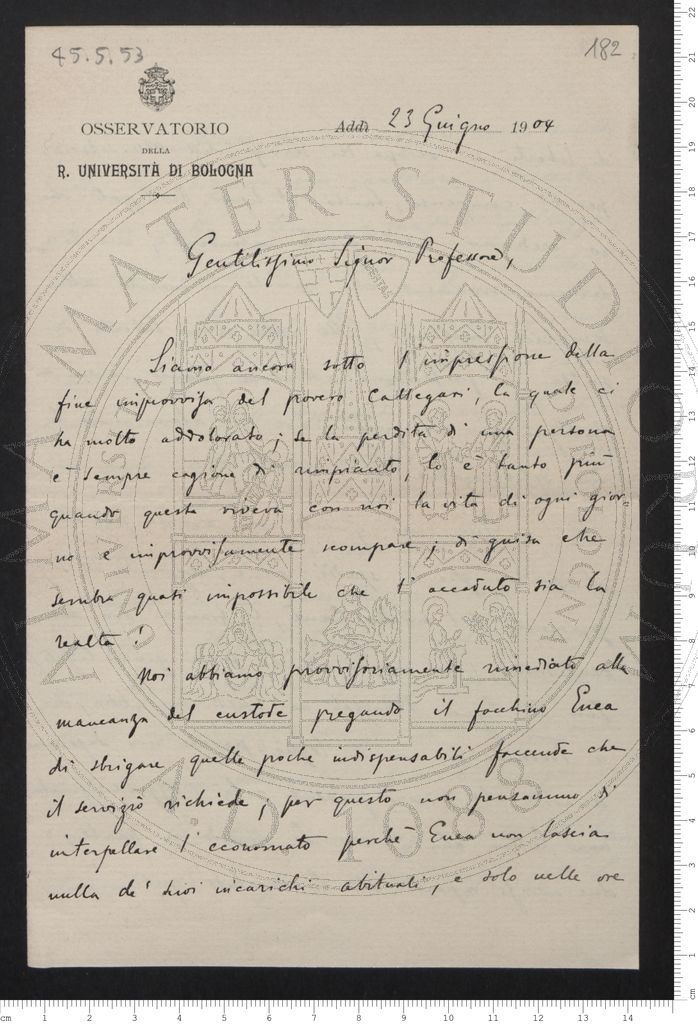 45.5.53
182
OSSERVATORIO
DELLA
R. UNIVERSITÀ DI BOLOGNA
Addì 23 Giugno 1904
Gentilissimo Signor Professore,
Siamo ancora sotto l'impressione della
fine improvvisa del povero Callegari, la quale ci
ha molto addolorato; se la perdita di una persona
è sempre cagione di rimpianto, lo è tanto più
quando questa viveva con noi la vita di ogni gior-
no e improvvisamente scompare; di guisa che
sembra quasi impossibile che l'accaduto sia la
realtà!
Noi abbiamo provvisoriamente rimediato alla
mancanza del custode pregando il facchino Enea
di sbrigare quelle poche indispensabili faccende che
il servizio richiede; per questo non pensammo di
interpellare l'economato perchè Enea non lascia
nulla de' suoi incarichi abituali, e solo nelle ore
ALMA MATER STUDIORUM
A.D. 1088